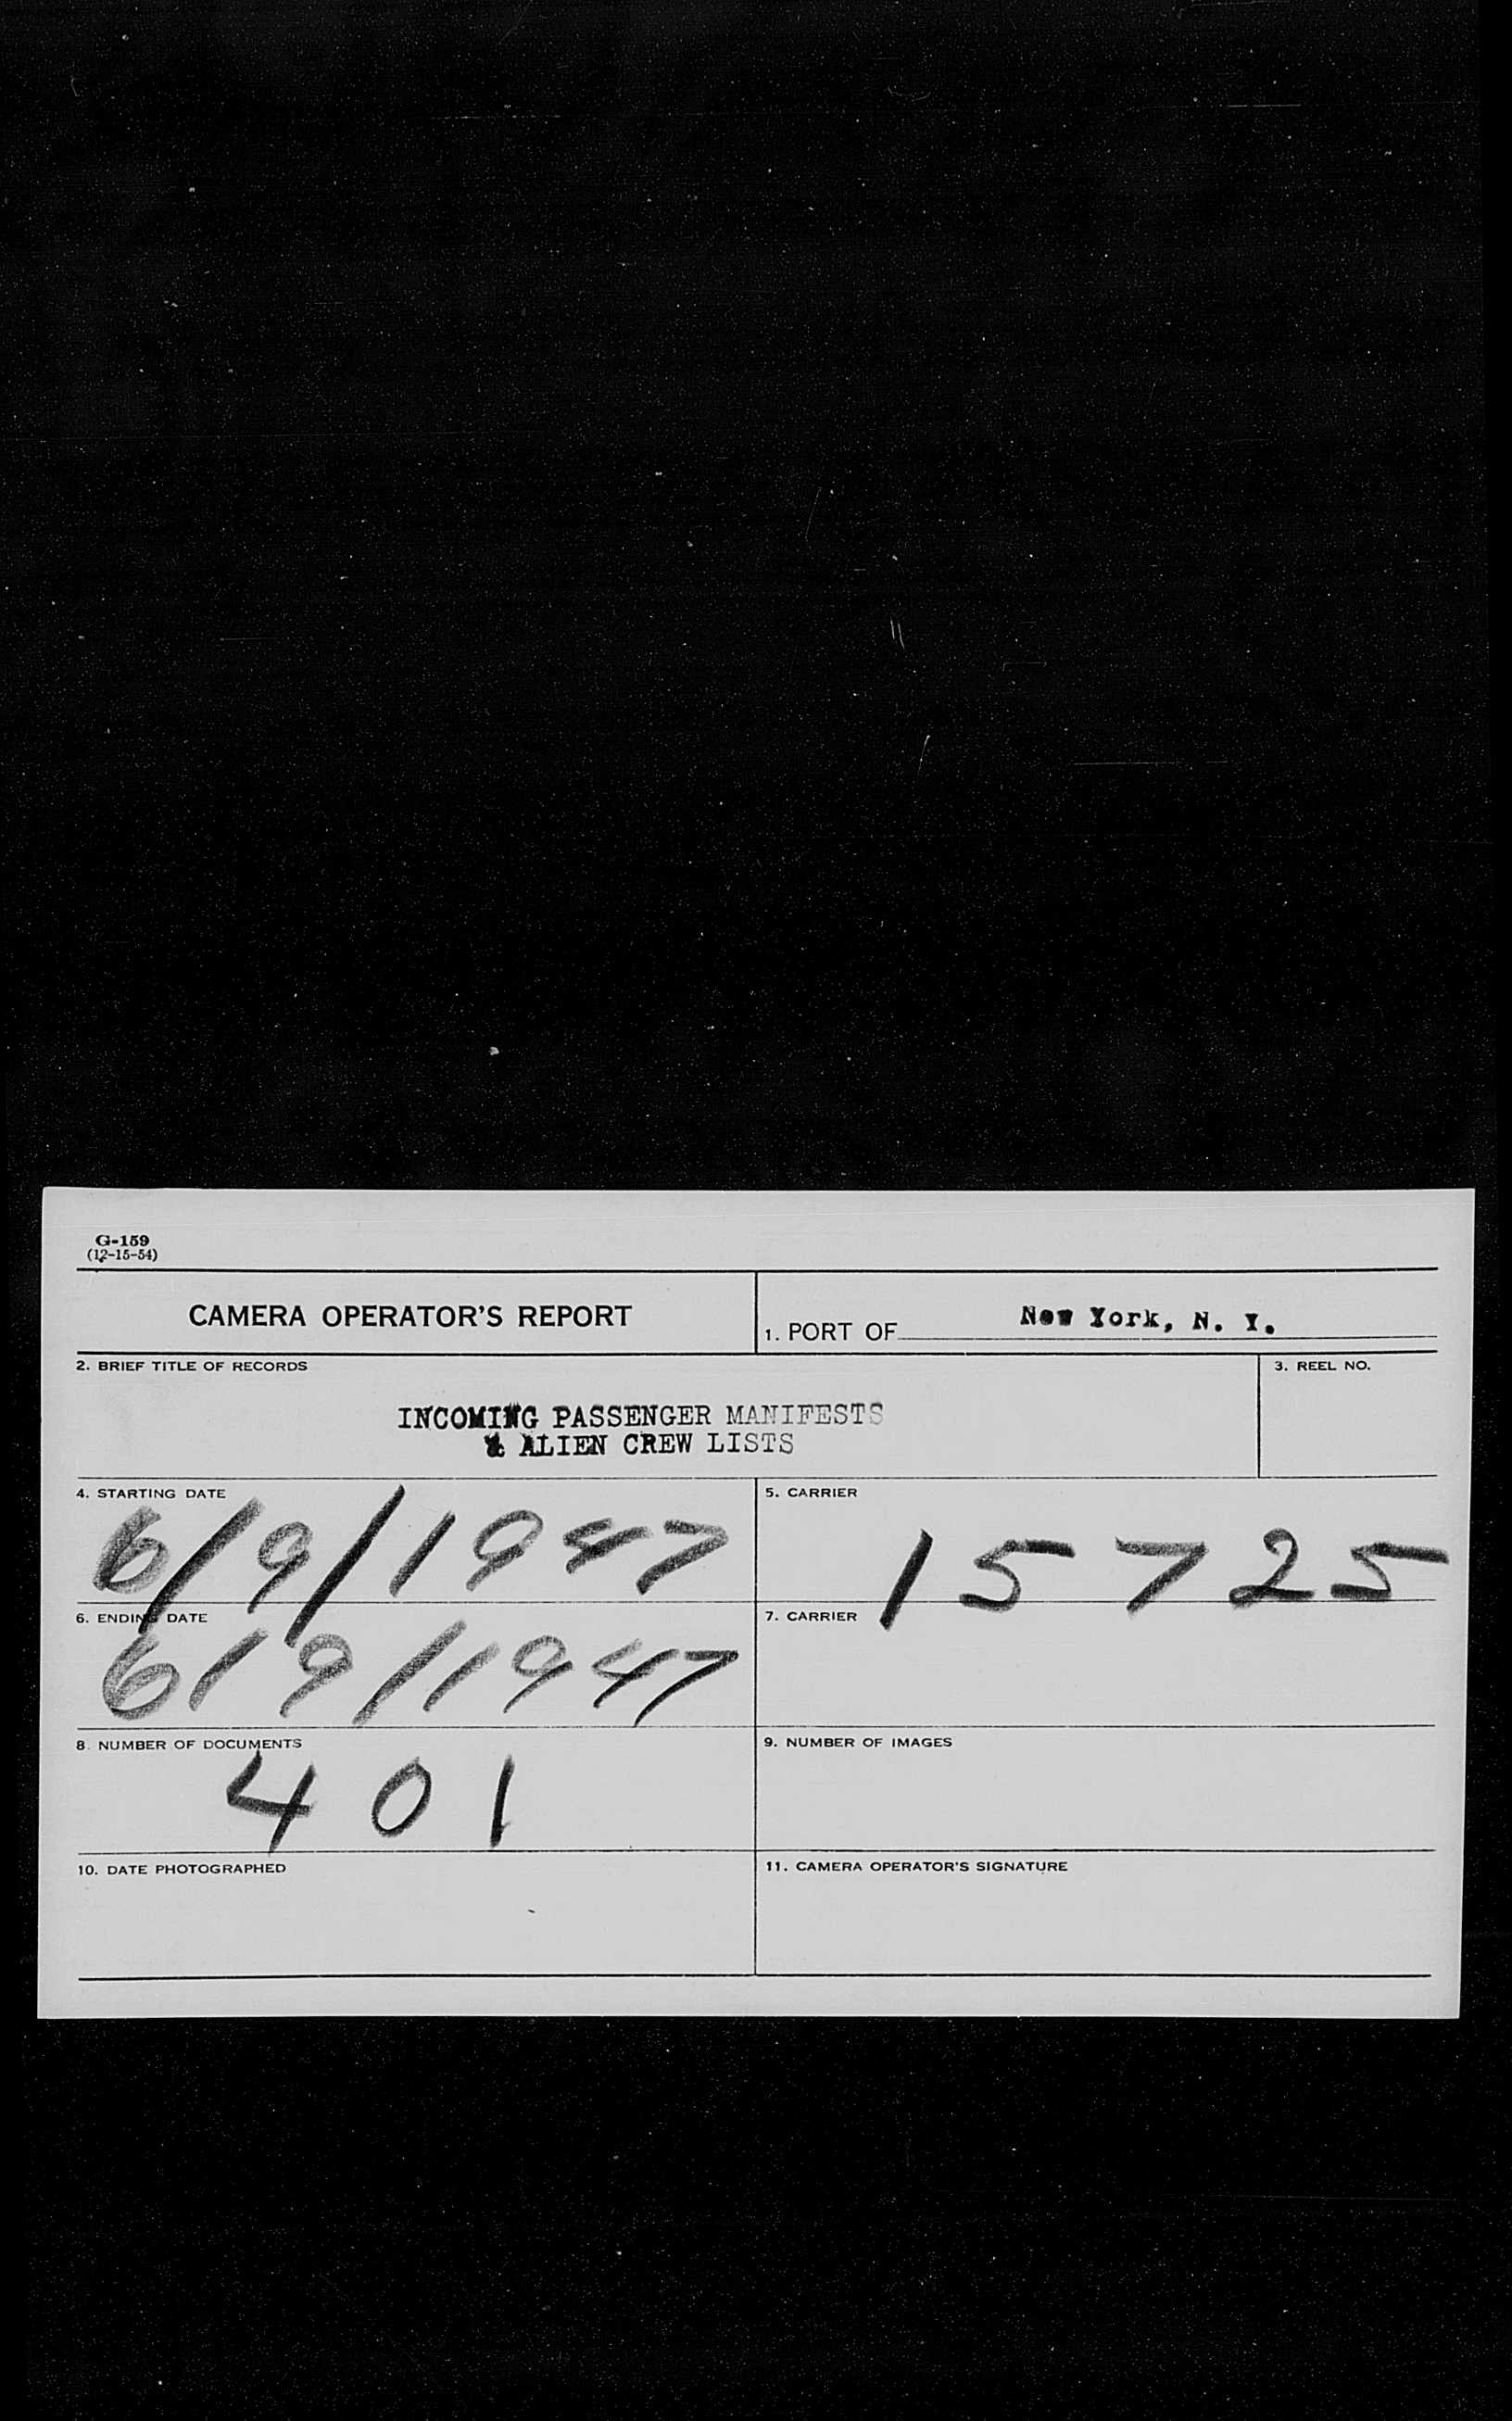 G-159
(12-15-54)
CAMERA OPERATOR'S REPORT
1. PORT OF New York, N. Y.
2. BRIEF TITLE OF RECORDS
3. REEL NO.
INCOMING PASSENGER MANIFESTS
& ALIEN CREW LISTS
4. STARTING DATE
6/9/1947
5. CARRIER
15725
6. ENDING DATE
6/9/1947
7. CARRIER
8. NUMBER OF DOCUMENTS
401
9. NUMBER OF IMAGES
10. DATE PHOTOGRAPHED
11. CAMERA OPERATOR'S SIGNATURE